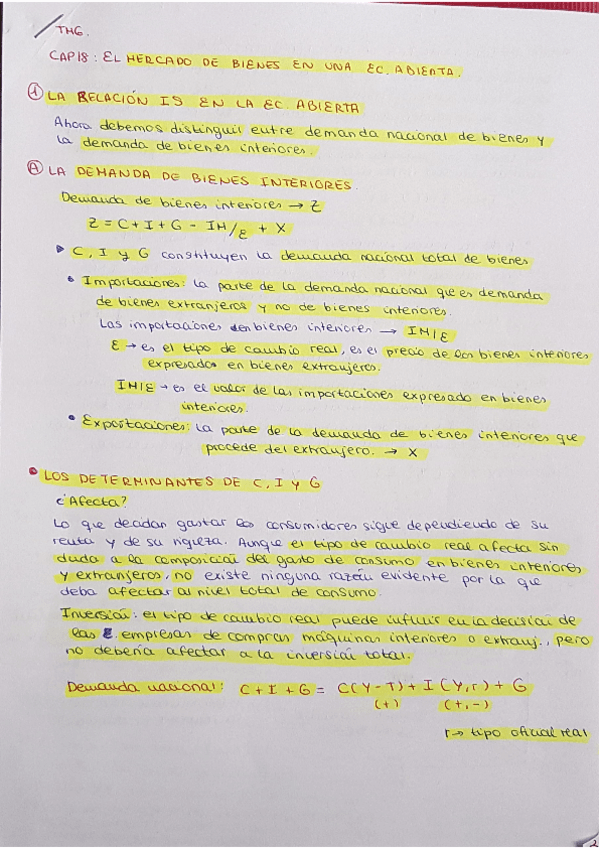 TH6.
CAP18: EL MERCADO DE BIENES EN UNA EC. ABIERTA.
① LA RELACIÓN IS EN LA EC. ABIERTA
Ahora debemos distinguir entre demanda nacional de bienes y
la demanda de bienes interiores.
Ⓐ LA DEMANDA DE BIENES INTERIORES.
Demanda de bienes interiores → Z
Z = C + I + G - IM/ε + X
▸ C, I y G constituyen la demanda nacional total de bienes
• Importaciones: la parte de la demanda nacional que es demanda
de bienes extranjeros y no de bienes interiores.
Las importaciones en bienes interiores → IM/ε
ε → es el tipo de cambio real, es el precio de los bienes interiores
expresados en bienes extranjeros.
IM/ε → es el valor de las importaciones expresado en bienes
interiores.
• Exportaciones: la parte de la demanda de bienes interiores que
procede del extranjero. → X
• LOS DETERMINANTES DE C, I y G
¿Afecta?
Lo que decidan gastar los consumidores sigue dependiendo de su
renta y de su riqueza. Aunque el tipo de cambio real afecta sin
duda a la composición del gasto de consumo en bienes interiores
y extranjeros, no existe ninguna razón evidente por la que
deba afectar al nivel total de consumo.
Inversión: el tipo de cambio real puede influir en la decisión de
las empresas de comprar máquinas interiores o extranj., pero
no debería afectar a la inversión total.
Demanda nacional: C + I + G = C(Y - T) + I (Y, r) + G
(+) (+, -)
r → tipo oficial real
2